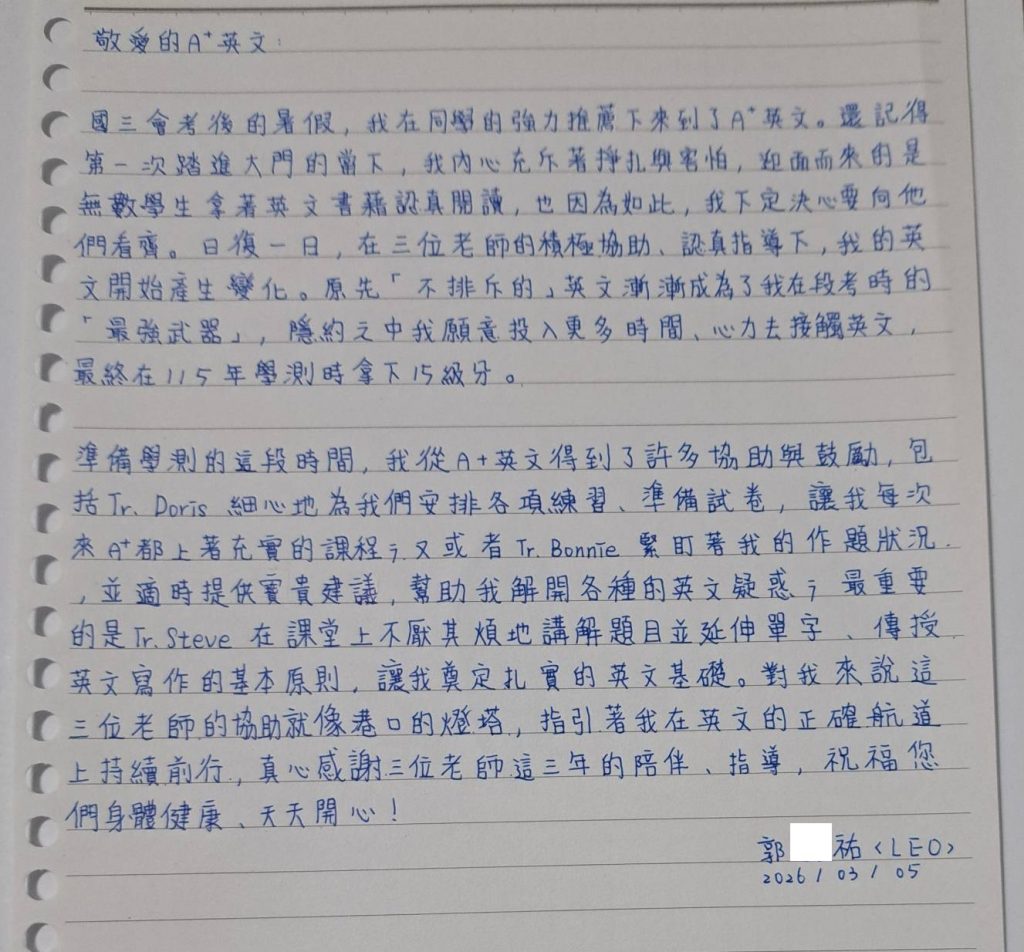 敬愛的A⁺英文:
國三會考後的暑假,我在同學的強力推薦下來到了A⁺英文。還記得
第一次踏進大門的當下,我內心充斥著掙扎與害怕,迎面而來的是
無數學生拿著英文書籍認真閱讀,也因為如此,我下定決心要向他
們看齊。日復一日,在三位老師的積極協助、認真指導下,我的英
文開始產生變化。原先「不排斥的」英文漸漸成為了我在段考時的
「最強武器」,隱約之中我願意投入更多時間、心力去接觸英文,
最終在115年學測時拿下15級分。
準備學測的這段時間,我從A+英文得到了許多協助與鼓勵,包
括Tr. Doris 細心地為我們安排各項練習、準備試卷,讓我每次
來A⁺都上著充實的課程;又或者Tr. Bonnie 緊盯著我的作題狀況
,並適時提供寶貴建議,幫助我解開各種的英文疑惑;最重要
的是Tr. Steve 在課堂上不厭其煩地講解題目並延伸單字、傳授
英文寫作的基本原則,讓我奠定扎實的英文基礎。對我來說這
三位老師的協助就像港口的燈塔,指引著我在英文的正確航道
上持續前行,真心感謝三位老師這三年的陪伴、指導,祝福您
們身體健康、天天開心!
郭 祐〈LEO〉
2026/03/05